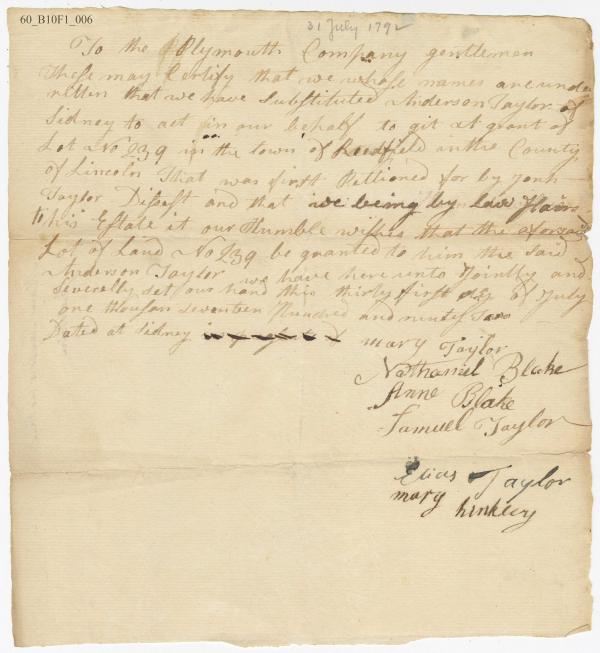 60_B10F1_006
31 July 1792
To the Plymouth Company gentlemen
These may Certify that we whose names are under
ritten that we have Substituted Anderson Taylor of
Sidney to act in our behalf to git at grant of
Lot No 239 in the town of Readfield in the County
of Lincoln That was first Petitioned for by John
Taylor Diseast and that we being by law Hairs
to his Estate it our Humble wishes that the aforesaid
Lot of Land No 239 be granted to him the said
Anderson Taylor we have here unto Jointly and
severally set our hand this thirty first of July
one thousan seventeen Hundred and ninety two
Dated at Sidney
Mary Taylor
Nathaniel Blake
Anne Blake
Samuel Taylor
Elias Taylor
mary hinkley